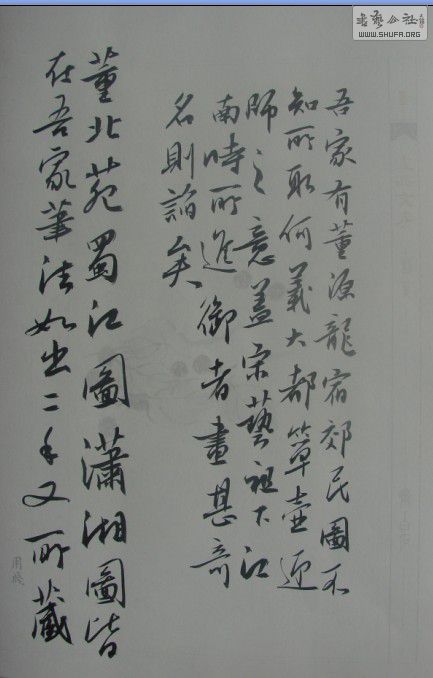 吾家有董源龍宿郊民圖不
知所取何義大都簞壺迎
師之意蓋宋藝祖下江
南時所進御者畫甚奇
名則諂矣
董北苑蜀江圖瀟湘圖皆
在吾家筆法如出二手又所藏
書藝公社
WWW.SHUFA.ORG